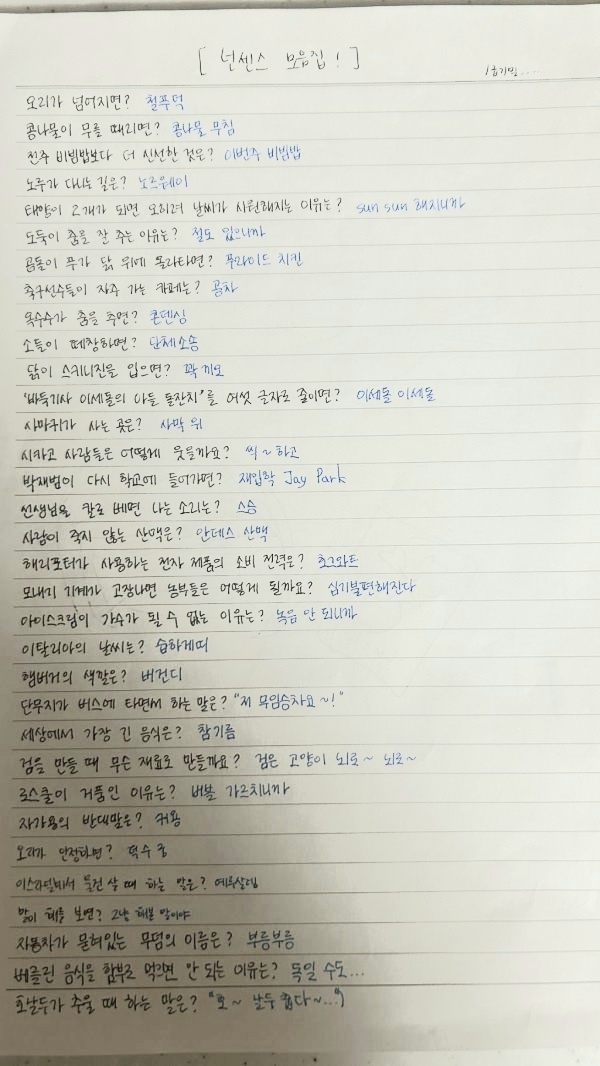 [ 넌센스 모음집! ]
오리가 넘어지면? 철푸덕
콩나물이 무를 때리면? 콩나물 무침
전주 비빔밥보다 더 신선한 것은? 이번주 비빔밥
노루가 다니는 길은? 노르웨이
태양이 2개가 되면 오히려 날씨가 시원해지는 이유는? sun sun 해지니까
도둑이 춤을 잘 추는 이유는? 절도 있으니까
곰돌이 푸가 닭 위에 올라타면? 푸라이드 치킨
축구선수들이 자주 가는 카페는? 공차
옥수수가 춤을 추면? 콘덴싱
소들이 떼창하면? 단체소송
닭이 스키니진을 입으면? 꽉 끼오
'바둑기사 이세돌의 아들 돌잔치'를 여섯 글자로 줄이면? 이세돌 이세돌
사마귀가 사는 곳은? 사막 위
시카고 사람들은 어떻게 웃을까요? 씩~하고
박재범이 다시 학교에 들어가면? 재입학 Jay Park
선생님을 칼로 베면 나는 소리는? 스승
사람이 죽지 않는 산맥은? 안데스 산맥
해리포터가 사용하는 전자 제품의 소비 전력은? 호그와트
모내기 기계가 고장나면 농부들은 어떻게 될까요? 심기불편해진다
아이스크림이 가수가 될 수 없는 이유는? 녹음 안 되니까
이탈리아의 날씨는? 습하게띠
햄버거의 색깔은? 버건디
단무지가 버스에 타면서 하는 말은? "저 무임승차요~!"
세상에서 가장 긴 음식은? 참기름
검을 만들 때 무슨 재료로 만들까요? 검은 고양이 뇌로~ 뇌로~
로스쿨이 거품인 이유는? 버블 가르치니까
자가용의 반대말은? 커용
오리가 안정되면? 덕수궁
이스라엘에서 물건 살 때 하는 말은? 예루살렘
말이 해를 보면? 그냥 해본 말이야
자동차가 묻혀있는 무덤의 이름은? 부릉부릉
베를린 음식을 함부로 먹으면 안 되는 이유는? 독일 수도...
호날두가 추울 때 하는 말은? "호~ 날두 춥다~..."